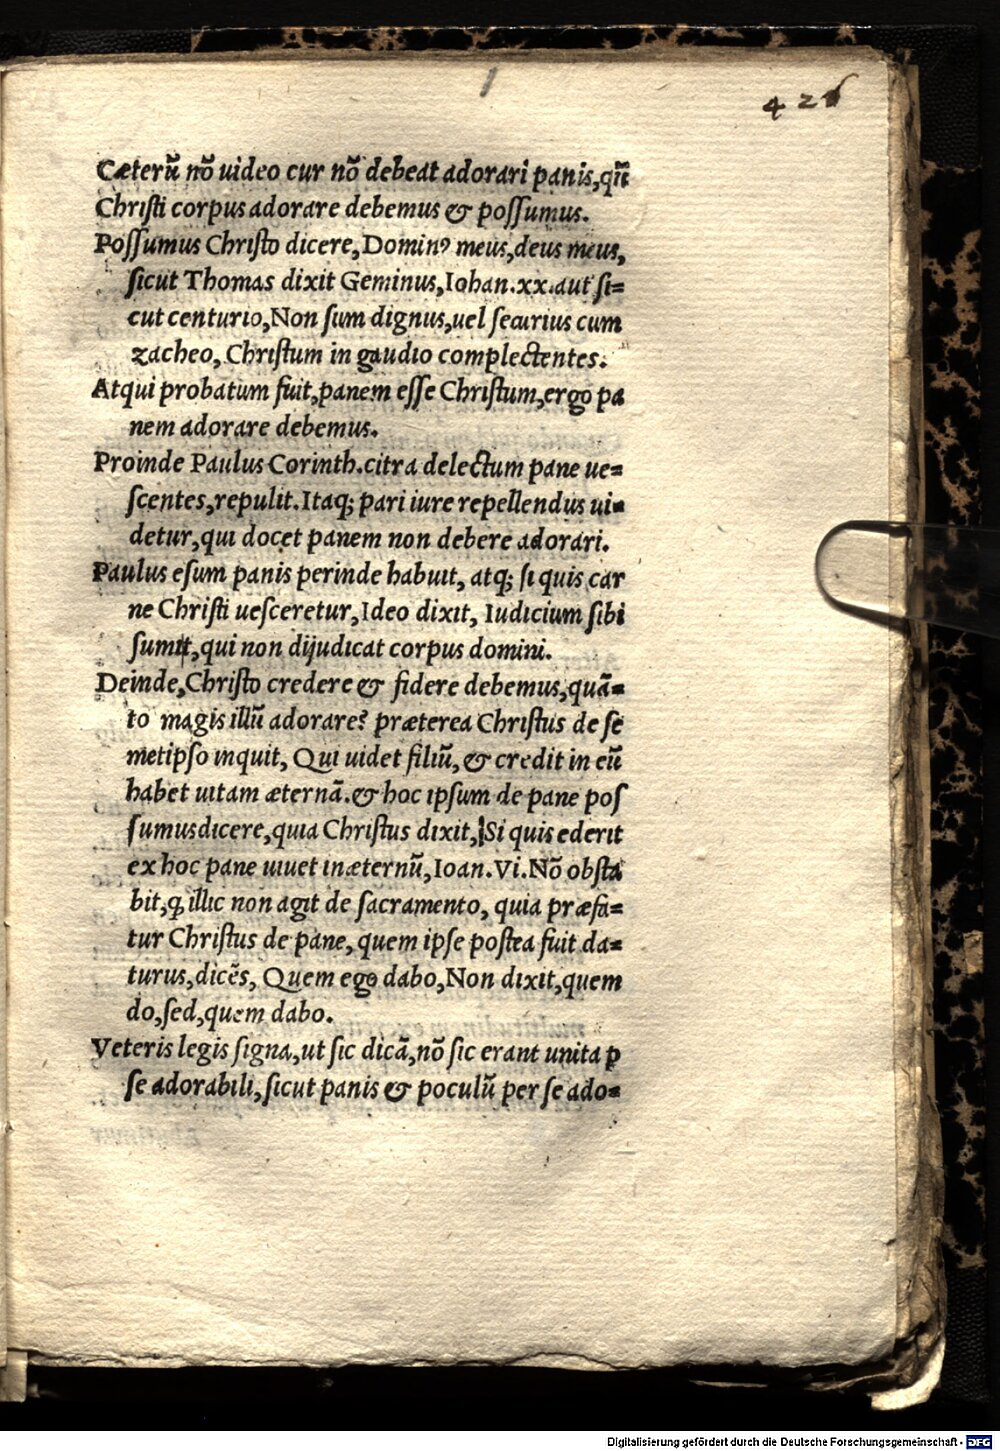 426
Cæterũ nõ uideo cur nõ debeat adorari panis,qñ
Chriſti corpus adorare debemus & poſſumus.
Poſſumus Chriſto dicere,Dominꝰ meus,deus meus,
ſicut Thomas dixit Geminus,Iohan.xx.aut ſi=
cut centurio,Non ſum dignus,uel ſecurius cum
zacheo, Chriſtum in gaudio complectentes.
Atqui probatum fuit,panem eſſe Chriſtum,ergo pa
nem adorare debemus.
Proinde Paulus Corinth.citra delectum pane ue=
ſcentes,repulit.Itaq; pari iure repellendus ui=
detur,qui docet panem non debere adorari.
Paulus eſum panis perinde habuit, atq; ſi quis car
ne Chriſti ueſceretur,Ideo dixit, Iudicium ſibi
ſumit,qui non dijudicat corpus domini.
Deinde,Chriſto credere & fidere debemus,quã=
to magis illũ adorare? præterea Chriſtus de ſe
metipſo inquit, Qui uidet filiũ,& credit in eũ
habet uitam æternã.& hoc ipſum de pane poſ
ſumus dicere,quia Chriſtus dixit,Si quis ederit
ex hoc pane uiuet in æternũ,Ioan.Vi.Nõ obſta
bit,ꝙ illic non agit de ſacramento, quia præfa=
tur Chriſtus de pane, quem ipſe poſtea fuit da=
turus,dicẽs, Quem ego dabo,Non dixit,quem
do,ſed,quem dabo.
Veteris legis ſigna,ut ſic dicã,nõ ſic erant unita ꝑ
ſe adorabili,ſicut panis & poculũ per ſe ado=
Digitalisierung gefördert durch die Deutsche Forschungsgemeinschaft - DFG